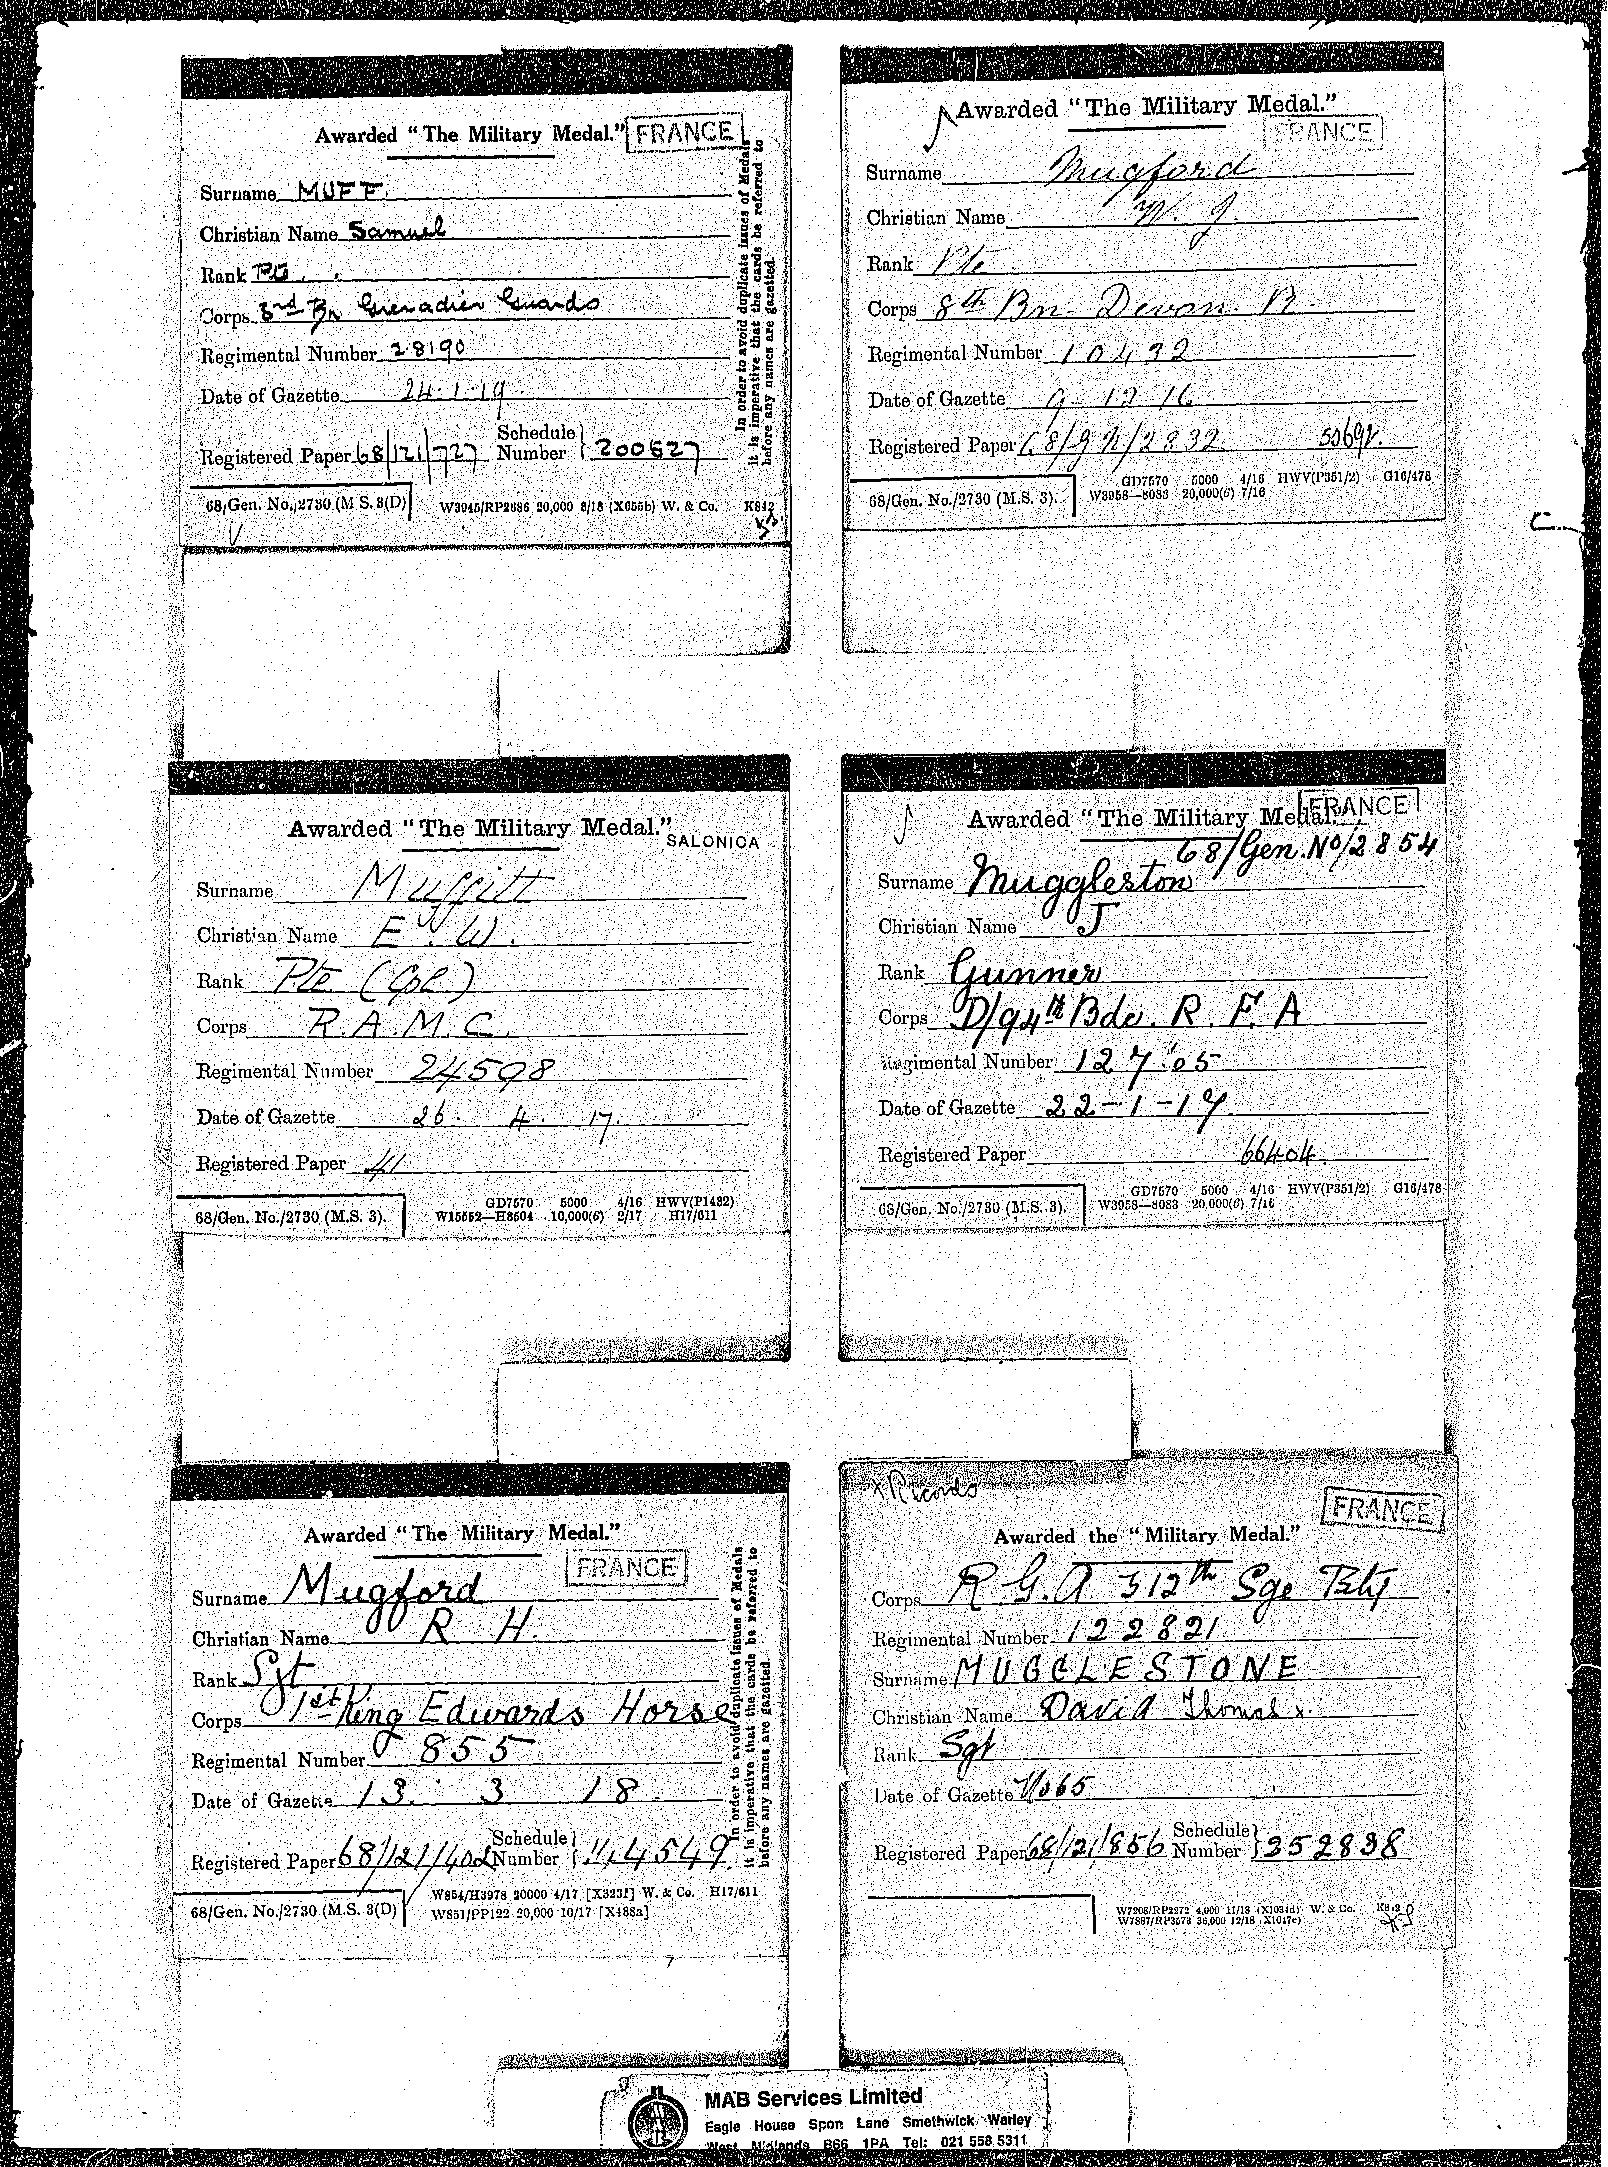 Awarded "The Military Medal." FRANCE
Surname MUFF.
Christian Name Samuel
Rank
Corps 3rd Bn Grenadier Guards
Regimental Number 28190
Date of Gazette 24.1.19
Registered Paper 68/121/727 Schedule Number 200627
68/Gen. No./2730 (M S. 3(D) W3045/RP2686 20,000 8/18 (X655b) W. & Co. K842
In order to avoid duplicate issues of Medals
it is imperative that the cards be referred to
before any names are gazetted.
Awarded "The Military Medal."
FRANCE
Surname Mugford
Christian Name W. J.
Rank Pte
Corps 8th Bn Devon. R.
Regimental Number 10432
Date of Gazette 9 12 16
Registered Paper 68/ /2832
GD7570 5000 4/16 HWV(P351/2) G16/478
68/Gen. No./2730 (M.S. 3). W3958—8083 20,000(6) 7/16
Awarded "The Military Medal."
SALONICA
Surname Muffitt
Christian Name E. W.
Rank Pte (Cpl)
Corps R.A.M.C.
Regimental Number 24598
Date of Gazette 26. 4. 17.
Registered Paper 41
GD7570 5000 4/16 HWV(P1482)
68/Gen. No./2730 (M.S. 3). W15652—H8504 10,000(6) 2/17 H17/611
Awarded "The Military Medal. FRANCE
68/Gen.No/2854
Surname Muggleston
Christian Name J
Rank Gunner
Corps D/94th Bde. R. F. A
Regimental Number
Date of Gazette 22-1-17
Registered Paper 66404
GD7570 5000 4/16 HWV(P351/2) G16/478
68/Gen. No./2730 (M.S. 3). W3958—8083 20,000(6) 7/16
Awarded "The Military Medal."
FRANCE
Surname Mugford
Christian Name R H.
Rank Sgt
Corps 1st King Edwards Horse
Regimental Number 855
Date of Gazette 13. 3 18
Registered Paper 68/121/402 Schedule Number 114549
W854/H3978 20000 4/17 [X323f] W. & Co. H17/611
68/Gen. No./2730 (M.S. 3(D) W851/PP122 20,000 10/17 [X488a]
In order to avoid duplicate issues of Medals
it is imperative that the cards be referred to
before any names are gazetted.
Records
FRANCE
Awarded the "Military Medal."
Corps R.G.A 312th Sge Bty
Regimental Number 122821
Surname MUGGLESTONE
Christian Name David Thomas
Rank Sgt
Date of Gazette No65
Registered Paper 68/121/856 Schedule Number 252838
W. & Co.
MAB Services Limited
Eagle House Spon Lane Smethwick Warley
West Midlands B66 1PA Tel: 021 558 5311